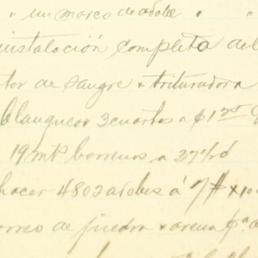 " un marco de adobe " "
instalación completa del
tor de sangre + trituradora
blanquear 3 cuartos a $1
19 mts barrenos a 27
hacer 4802 adobes á 7
de piedra + arena